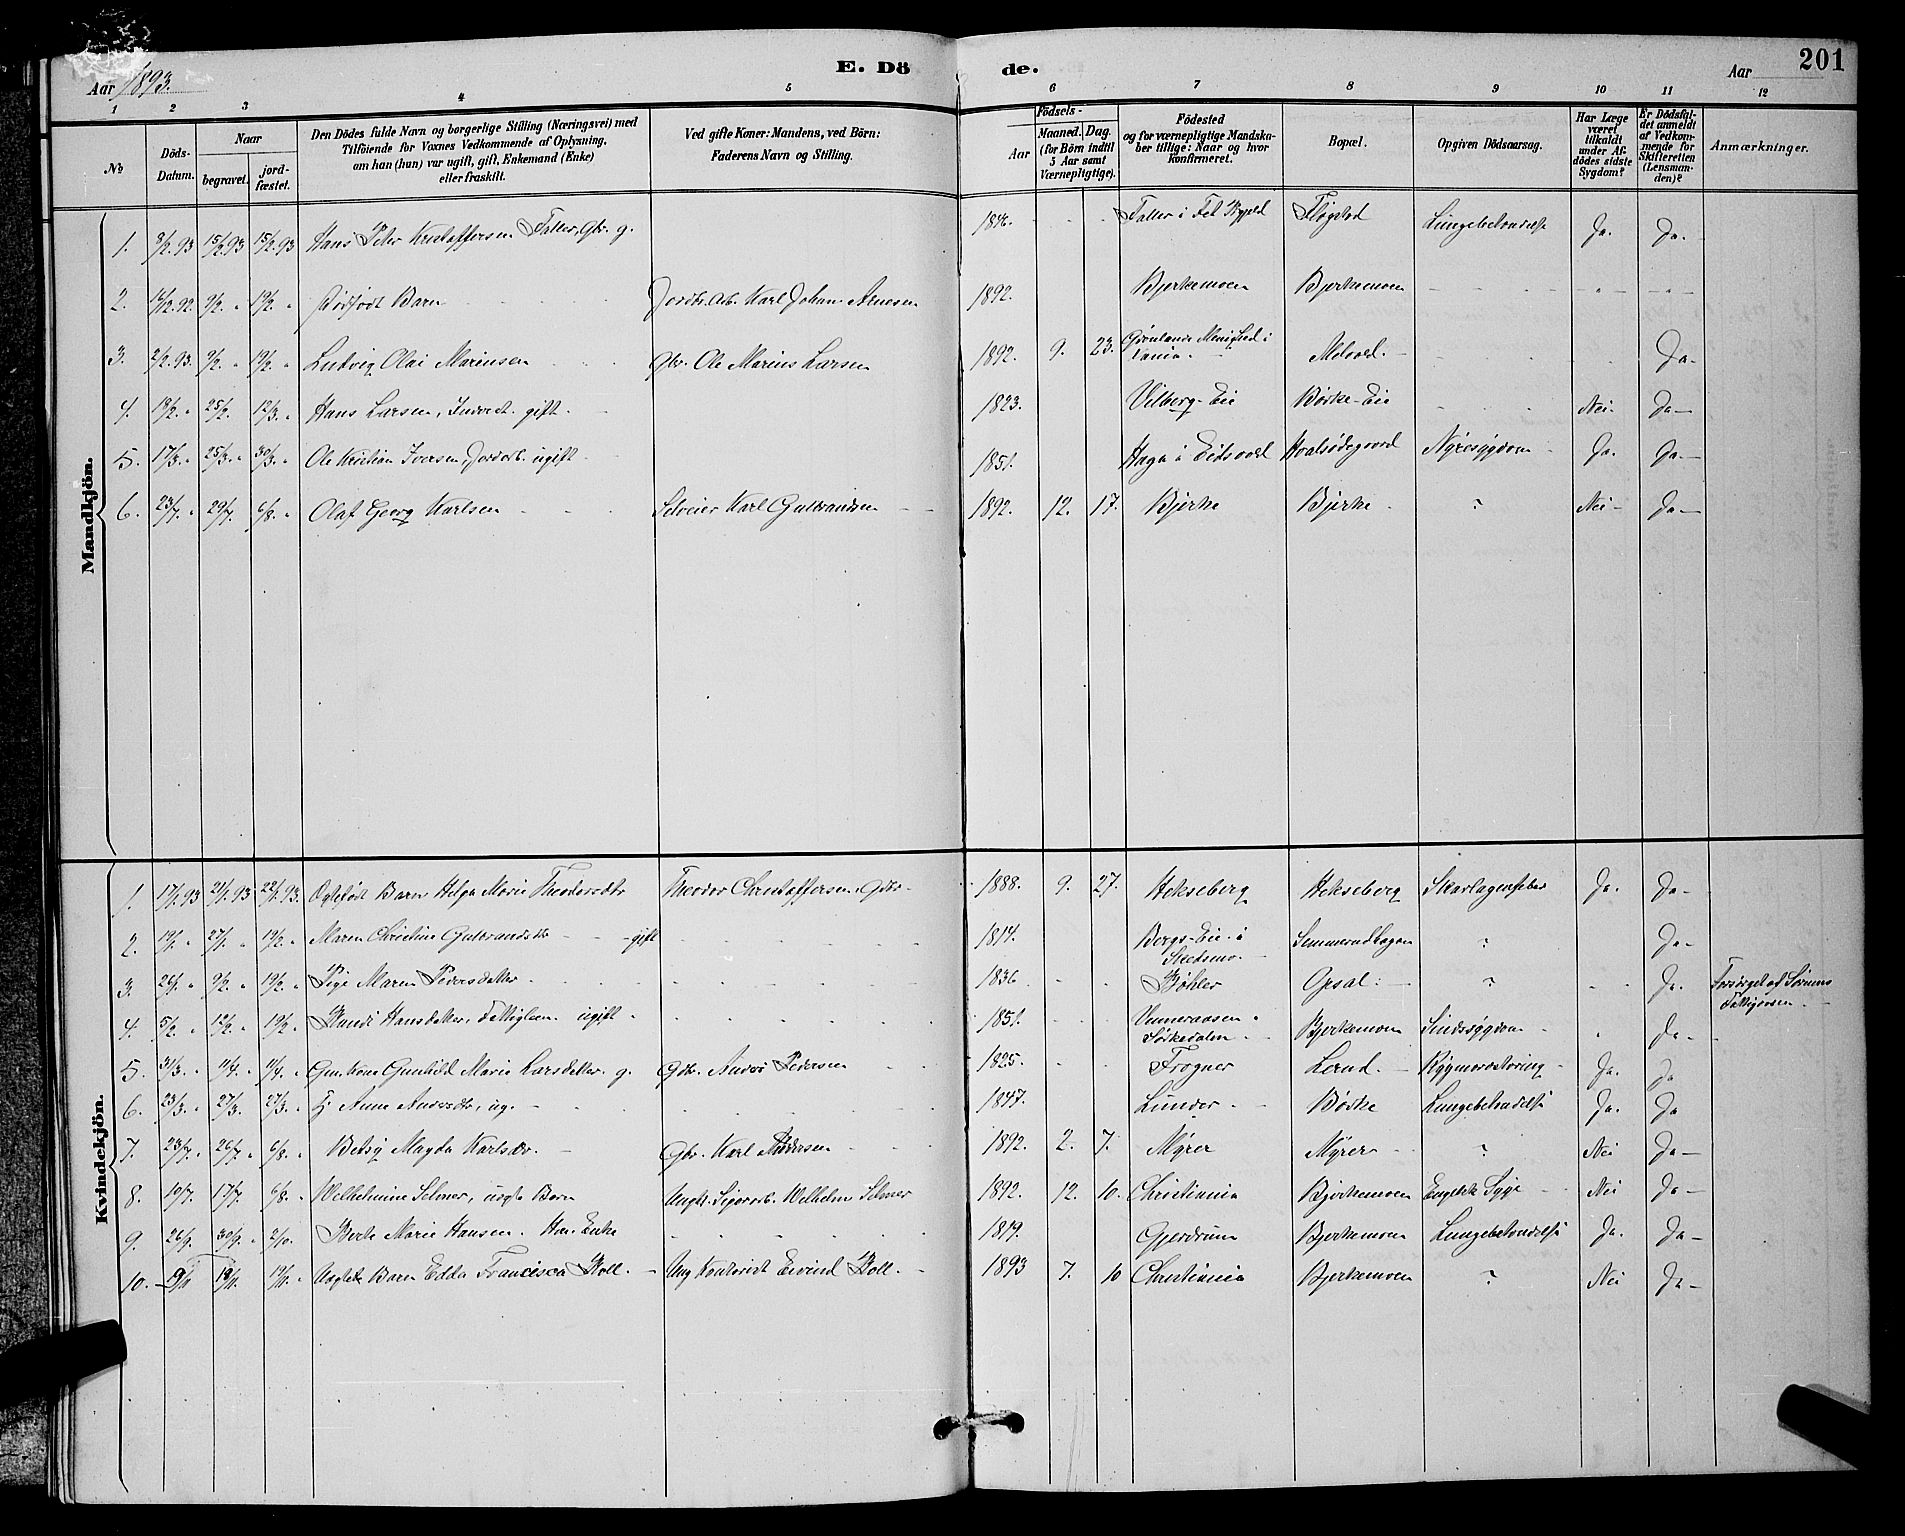 E. Dö de.
201
Aar 1893.
Aar
1 2 3 4 5 6 7 8 9 10 11 12
No
Döds-Datum.
Naar
begravet.
jord-fæstet.
Den Dödes fulde Navn og borgerlige Stilling (Næringsvei) med
Tilföiende for Voxnes Vedkommende af Oplysning,
om han (hun) var ugift, gift, Enkemand (Enke)
eller fraskilt.
Ved gifte Koner: Mandens, ved Börn:
Faderens Navn og Stilling.
Födsels-
Aar
Maaned. Dag.
(for Börn indtil
5 Aar samt
Værnepligtige).
Födested
og for værnepligtige Mandska-
ber tillige: Naar og hvor
konfirmeret.
Bopæl.
Opgiven Dödsaarsag.
Har Læge
været
tilkaldt
under Af-
dödes sidste
Sygdom?
Er Dödsfal-
det anmeldt
af Vedkom-
mende for
Skifteretten
(Lensman-
den)?
Anmærkninger.
Mandkjön.
1. 3/2 93 15/2 93 15/2 93 Hans Peter Kristoffersen Faller, Gbr. g. 1846. Faller i Fet Flogstad Lungebetændelse Ja. Ja.
2. 14/12 92. 9/2 " 19/2 " Dødfødt Barn Jordbr. Arb. Karl Johan Arnesen 1892. Bjerkemoen Bjerkemoen - " - - " -
3. 2/2 93. 9/2 " 19/2 " Ludvig Olai Marinsen Gbr. Ole Marius Larsen 1892. 9. 23. Grønlands Menighed i Xania Melvold. Ja-
4. 18/2 " 25/2. 12/3. " Hans Larsen, Inderst. gift. 1823. Vilberg-Eie Børke-Eie Nei- Ja-
5. 17/3. " 25/3. " 30/3. " Ole Kristian Iversen, Jordarb. ugift 1851. Haga i Eidsvold Hvalsødegaard Nyresygdom Ja. Ja.-
6. 23/7. " 29/7. 6/8. " Olaf Georg Karlsen Selveier Karl Gulbrandsen 1892. 12. 17. Bjerke Bjerke ? Nei- Ja-
Kvindekjön.
1. 17/1 93 21/1 93 22/1 93. Ægtefødt Barn Helga Marie Theodorsdtr Theodor Christoffersen, Gbr. 1888. 9. 27. Hekseberg Hekseberg Skarlagensfeber Ja. Ja-
2. 19/1. " 27/1. " 19/2 " Maren Christine Gulbrandsdtr - gift 1814. Bergs-Eie i Skedsmo. ? Ja-
3. 26/1. " 9/2 " 19/2 " Pige Maren Pedersdatter 1836 Bøhler Opsal ? Ja. Forsørget af Sørums Fattigvæsen
4. 5/2 " 12/2 " 19/2 " Randi Hansdatter, Fattiglem. ugift 1851. Bjerkemoen Sindssygdom Ja-
5. 31/3. " 11/4. " 11/4. " Gmk. Kone Gunhild Marie Larsdatter. g. Gbr. Anders Pedersen 1825. Frogner Lerud. Rygmarvstæring Ja. Ja
6. 23/3. " 27/3. 27/3. " Anne Andersdtr, ug. 1847. Lunder Børke Lungebetændelse Ja. Ja
7. 23/7. " 26/7. " 6/8. " Betsy Magda Karlsdtr. Gbr. Karl Andersen 1892. 2. 7. Myrer Myrer ? Nei Ja-
8. 10/7. 17/7 6/8. " Wilhelmine Selmer, uægte Barn Ungk. Sigararb. Wilhelm Selmer 1892. 12. 10. Christiania Bjerkemoen Engelsk Syge Nei Ja-
9. 26/9. 30/9. " 2/10. " Berte Marie Hansen. Hm. Enke 1819. Gjerdrum Bjerkemoen Lungebetændelse Ja. Ja-
10. 9/11 19/11. 19/11. " Uægte Barn Edda Francisca Koll. Ung Kontorist Eivind Koll. 1893 7. 10 Christiania Bjerkemoen ? Nei Ja-